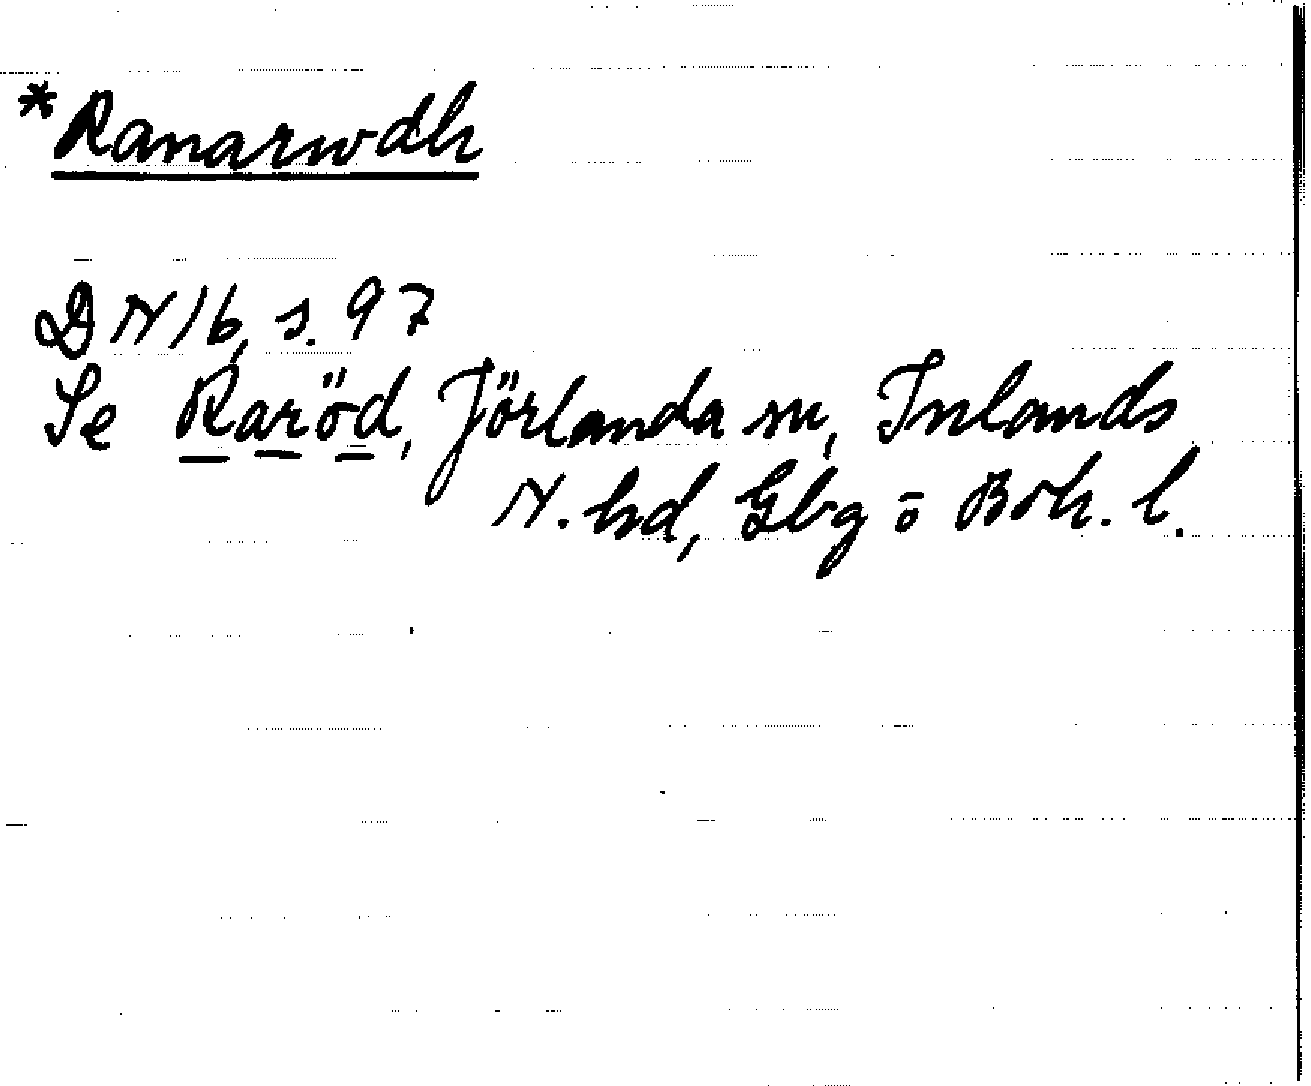 *Ranarwdh
DN 16, s. 97
Se Raröd, Jörlanda sn, Inlands
N. hd, Gbg o Boh. l.